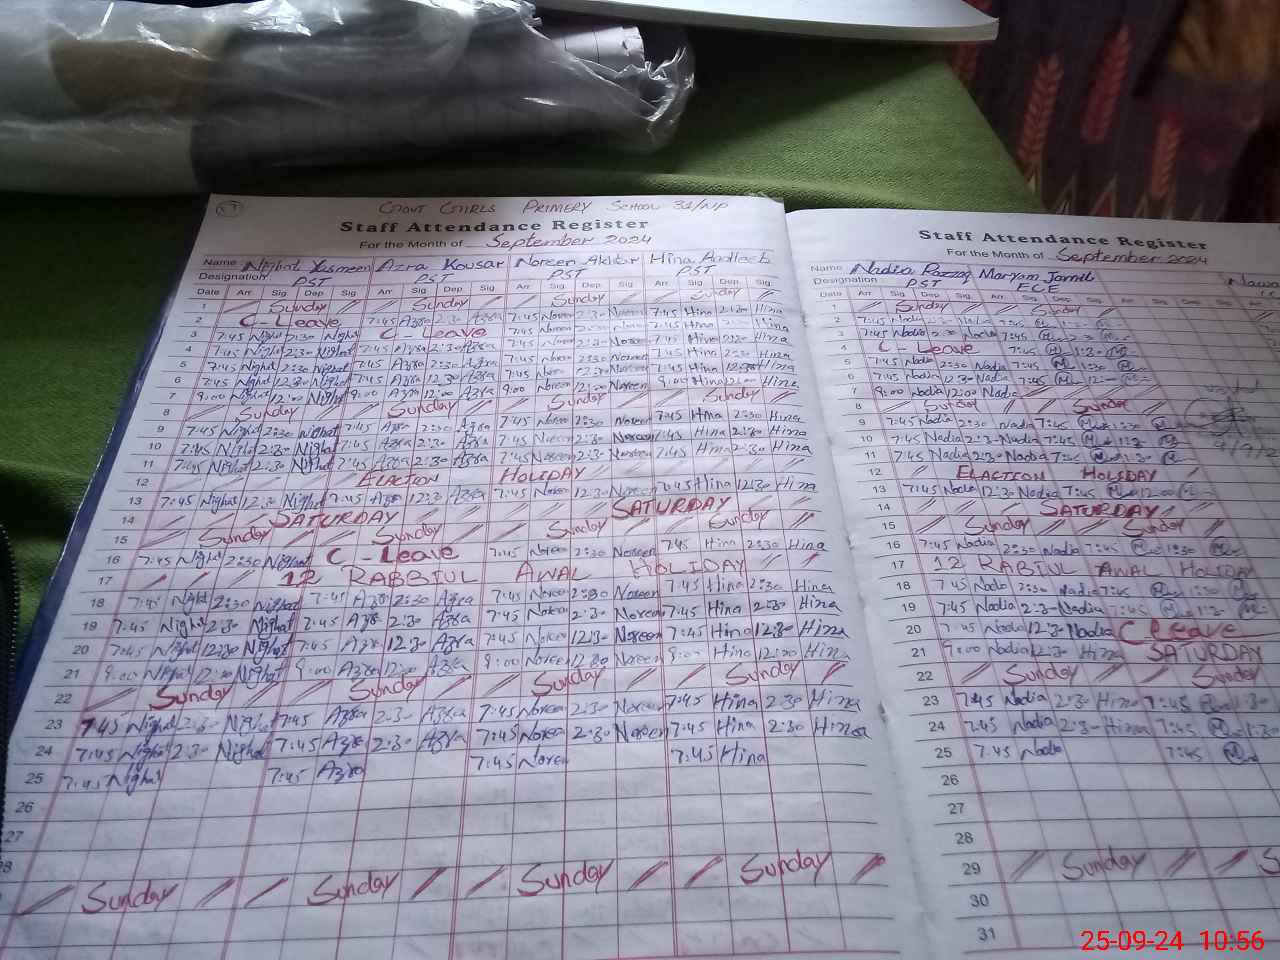 GOVT GIRLS PRIMERY SCHOOL 31/NP
Staff Attendance Register
For the Month of September 2024
Name: Nighat Yasmeen Azra Kousar Noreen Akhtar Hina
Designation PST PST PST PST
Date Arr Sig Dep Sig Arr Sig Dep Sig Arr Sig Dep Sig Arr Sig Dep Sig
1 Sunday Sunday Sunday Sunday
2 C-Leave 7:45 Azra 2:30 Azra 7:45 Noreen 2:30 Noreen 7:45 Hina 2:30 Hina
3 7:45 Nighat 2:30 Nighat C-Leave 7:45 Noreen 2:30 Noreen 7:45 Hina 2:30 Hina
4 7:45 Nighat 2:30 Nighat 7:45 Azra 2:30 Azra 7:45 Noreen 2:30 Noreen 7:45 Hina 2:30 Hina
5 7:45 Nighat 2:30 Nighat 7:45 Azra 2:30 Azra 7:45 Noreen 2:30 Noreen 7:45 Hina 2:30 Hina
6 7:45 Nighat 12:30 Nighat 7:45 Azra 12:30 Azra 7:45 Noreen 12:30 Noreen 7:45 Hina 12:30 Hina
7 9:00 Nighat 12:00 Nighat 9:00 Azra 12:00 Azra 9:00 Noreen 12:00 Noreen 9:00 Hina 12:00 Hina
8 Sunday Sunday Sunday Sunday
9 7:45 Nighat 2:30 Nighat 7:45 Azra 2:30 Azra 7:45 Noreen 2:30 Noreen 7:45 Hina 2:30 Hina
10 7:45 Nighat 2:30 Nighat 7:45 Azra 2:30 Azra 7:45 Noreen 2:30 Noreen 7:45 Hina 2:30 Hina
11 7:45 Nighat 2:30 Nighat 7:45 Azra 2:30 Azra 7:45 Noreen 2:30 Noreen 7:45 Hina 2:30 Hina
12 ELACTION HOLIDAY
13 7:45 Nighat 12:30 Nighat 7:45 Azra 12:30 Azra 7:45 Noreen 12:30 Noreen 7:45 Hina 12:30 Hina
14 SATURDAY SATURDAY
15 Sunday Sunday Sunday
16 7:45 Nighat 2:30 Nighat C-Leave 7:45 Noreen 2:30 Noreen 7:45 Hina 2:30 Hina
17 12 RABBIUL AWAL HOLIDAY
18 7:45 Nighat 2:30 Nighat 7:45 Azra 2:30 Azra 7:45 Noreen 2:30 Noreen 7:45 Hina 2:30 Hina
19 7:45 Nighat 2:30 Nighat 7:45 Azra 2:30 Azra 7:45 Noreen 2:30 Noreen 7:45 Hina 2:30 Hina
20 7:45 Nighat 12:30 Nighat 7:45 Azra 12:30 Azra 7:45 Noreen 12:30 Noreen 7:45 Hina 12:30 Hina
21 9:00 Nighat 12:00 Nighat 9:00 Azra 12:00 Azra 9:00 Noreen 12:00 Noreen 9:00 Hina 12:00 Hina
22 Sunday Sunday Sunday Sunday
23 7:45 Nighat 2:30 Nighat 7:45 Azra 2:30 Azra 7:45 Noreen 2:30 Noreen 7:45 Hina 2:30 Hina
24 7:45 Nighat 2:30 Nighat 7:45 Azra 2:30 Azra 7:45 Noreen 2:30 Noreen 7:45 Hina 2:30 Hina
25 7:45 Nighat 7:45 Azra 7:45 Noreen 7:45 Hina
26
27
28
Sunday Sunday Sunday Sunday
Staff Attendance Register
For the Month of September 2024
Name: Nadia Razzaq Maryam Jamil
Designation: PST ECE
Date Arr Sig Dep Sig Arr Sig Dep Sig Arr Sig Dep Sig Arr
1 Sunday Sunday
2 7:45 Nadia 2:30 Nadia 7:45 1:30
3 7:45 Nadia 2:30 Nadia 7:45 1:30
4 C-Leave 7:45 1:30
5 7:45 Nadia 2:30 Nadia 7:45 1:30
6 7:45 Nadia 12:30 Nadia 7:45 12:00
7 9:00 Nadia 12:00 Nadia
8 Sunday Sunday
9 7:45 Nadia 2:30 Nadia 7:45 1:30
10 7:45 Nadia 2:30 Nadia 7:45 1:30
11 7:45 Nadia 2:30 Nadia 7:45 1:30
12 ELACTION HOLIDAY
13 7:45 Nadia 12:30 Nadia 7:45 12:00
14 SATURDAY
15 Sunday Sunday
16 7:45 Nadia 2:30 Nadia 7:45 1:30
17 12 RABIUL AWAL HOLIDAY
18 7:45 Nadia 2:30 Nadia 7:45 1:30
19 7:45 Nadia 2:30 Nadia 7:45 1:30
20 7:45 Nadia 12:30 Nadia C Leave
21 9:00 Nadia 12:30 Hina SATURDAY
22 Sunday Sunday
23 7:45 Nadia 2:30 Hina 7:45 1:30
24 7:45 Nadia 2:30 Hina 7:45
25 7:45 Nadia 7:45
26
27
28
29 Sunday S
30
31
25-09-24 10:56